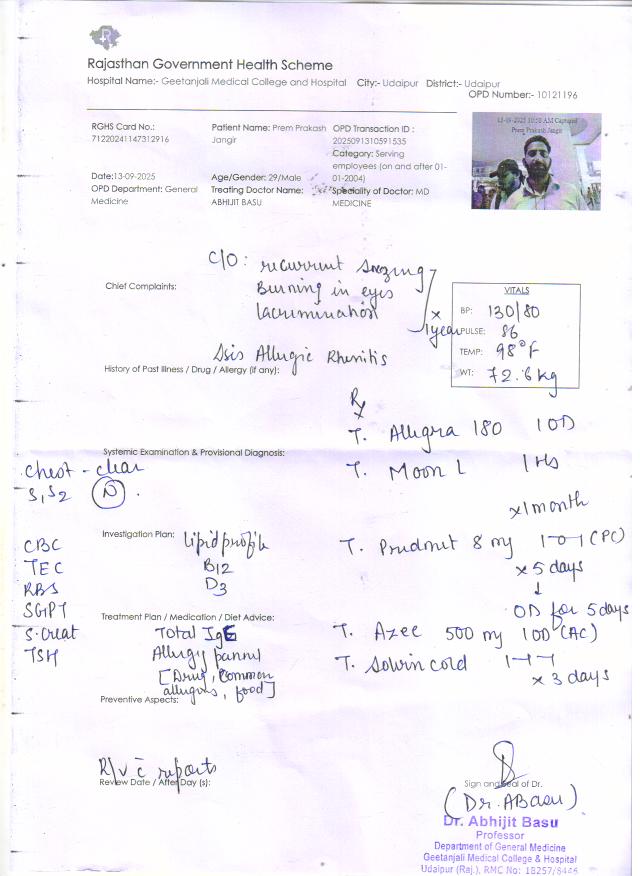 Rajasthan Government Health Scheme
Hospital Name:- Geetanjali Medical College and Hospital City:- Udaipur District:- Udaipur
OPD Number:- 10121196
RGHS Card No.:
71220241147312916
Patient Name: Prem Prakash
Jangir
OPD Transaction ID :
2025091310591535
Category: Serving
employees (on and after 01-
01-2004)
13-09-2025 10:58 AM Captured
Prem Prakash Jangir
Date:13-09-2025
OPD Department: General
Medicine
Age/Gender: 29/Male
Treating Doctor Name:
ABHIJIT BASU
Speciality of Doctor: MD
MEDICINE
C/O: recurrent
Chief Complaints:
Burning in eyes
x 1 year
VITALS
BP: 130/80
PULSE: 86
TEMP: 98°F
WT: 72.6 kg
Allergic Rhinitis
History of Past Illness / Drug / Allergy (if any):
Rx
T. Allegra 180 1 OD
Systemic Examination & Provisional Diagnosis:
Chest - clear
S1S2 (N).
T. Moon L 1 Hs
x 1 month
Investigation Plan:
Lipid profile
B12
D3
CBC
TEC
RBS
SGPT
S. Creat
TSH
T. 8 mg 1-0-1 (PC)
x 5 days
↓
OD for 5 days
Treatment Plan / Medication / Diet Advice:
Total IgE
Allergy pannel
[Drug, Common
allergens, food]
T. Azee 500 mg 1 OD (AC)
T. Solvin cold 1-1-1
x 3 days
Preventive Aspects:
R/v c̄ reports
Review Date / After Day (s):
Sign and Seal of Dr.
(Dr. ABasu)
Dr. Abhijit Basu
Professor
Department of General Medicine
Geetanjali Medical College & Hospital
Udaipur (Raj.), RMC No: 18257/8446